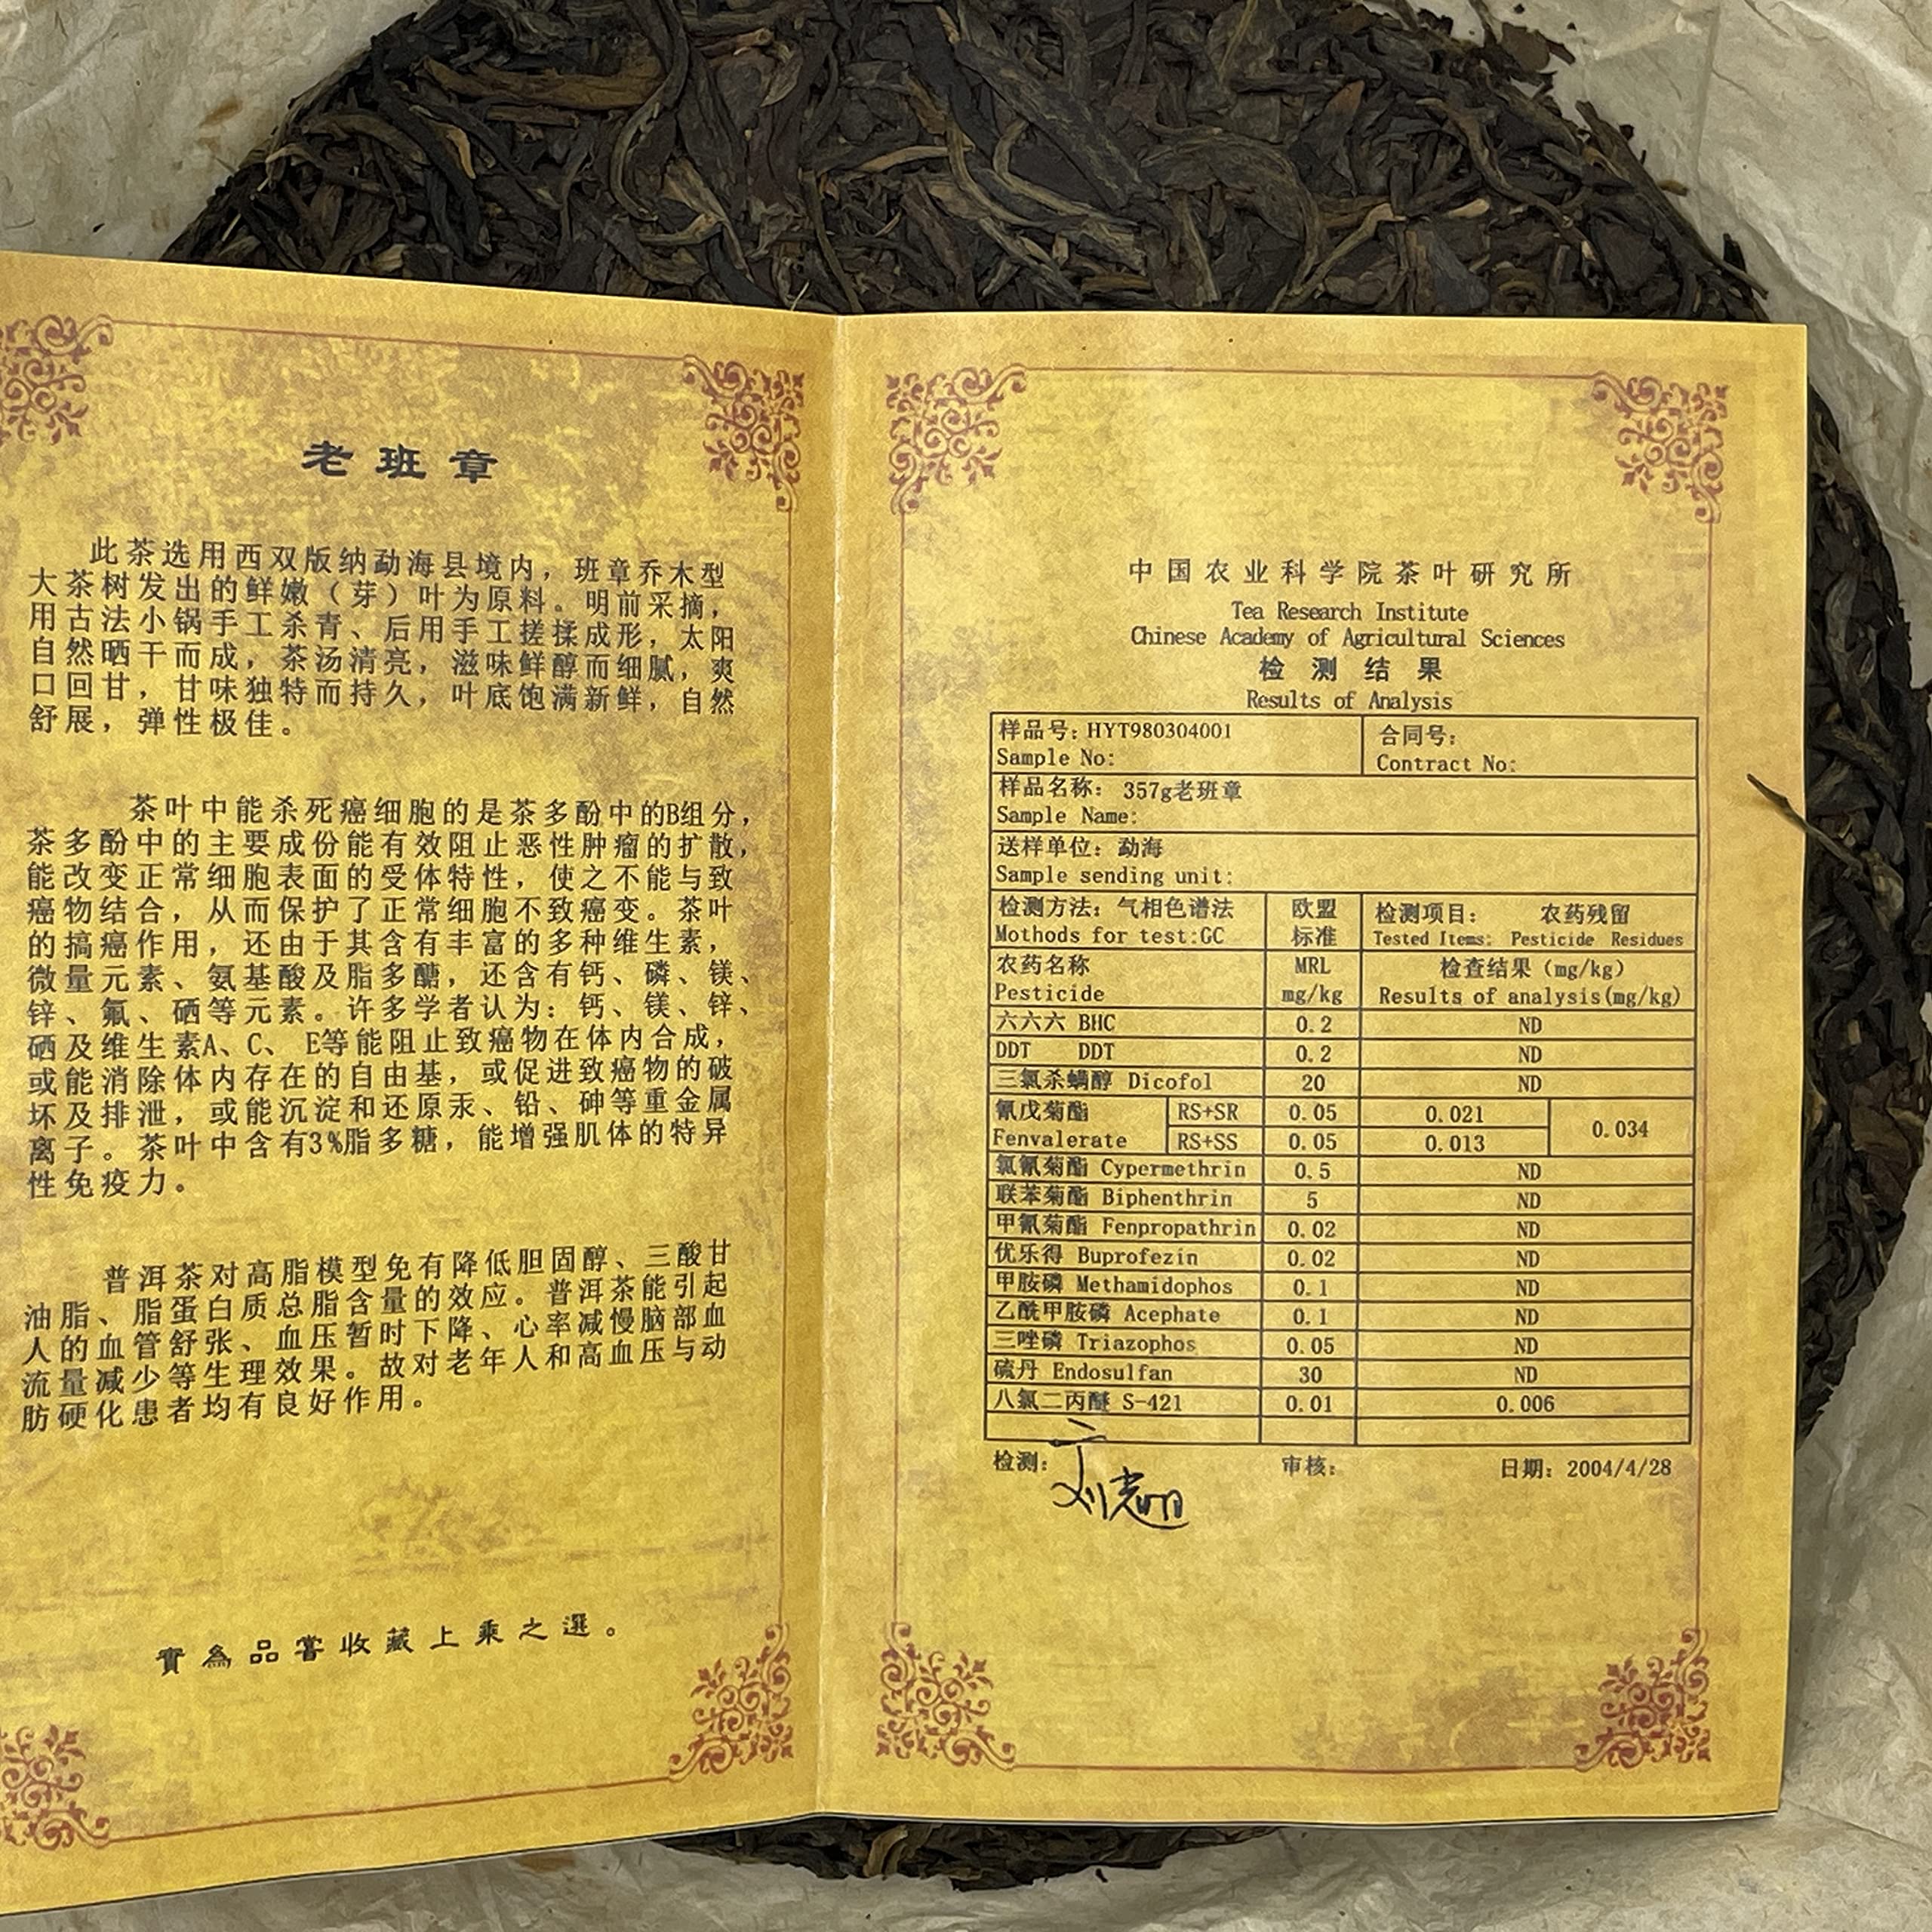 老班章
此茶选用西双版纳勐海县境内，班章乔木型
大茶树发出的鲜嫩（芽）叶为原料。明前采摘，
用古法小锅手工杀青、后用手工搓揉成形，太阳
自然晒干而成，茶汤清亮，滋味鲜醇而细腻，爽
口回甘，甘味独特而持久，叶底饱满新鲜，自然
舒展，弹性极佳。
茶叶中能杀死癌细胞的是茶多酚中的B组分，
茶多酚中的主要成份能有效阻止恶性肿瘤的扩散，
能改变正常细胞表面的受体特性，使之不能与致
癌物结合，从而保护了正常细胞不致癌变。茶叶
的搞癌作用，还由于其含有丰富的多种维生素，
微量元素、氨基酸及脂多醣，还含有钙、磷、镁、
锌、氟、硒等元素。许多学者认为：钙、镁、锌、
硒及维生素A、C、E等能阻止致癌物在体内合成，
或能消除体内存在的自由基，或促进致癌物的破
坏及排泄，或能沉淀和还原汞、铅、砷等重金属
离子。茶叶中含有3%脂多糖，能增强肌体的特异
性免疫力。
普洱茶对高脂模型免有降低胆固醇、三酸甘
油脂、脂蛋白质总脂含量的效应。普洱茶能引起
人的血管舒张、血压暂时下降、心率减慢脑部血
流量减少等生理效果。故对老年人和高血压与动
肪硬化患者均有良好作用。
實為品嘗收藏上乘之選。
中国农业科学院茶叶研究所
Tea Research Institute
Chinese Academy of Agricultural Sciences
检测结果
Results of Analysis
样品号：HYT980304001 合同号：
Sample No: Contract No:
样品名称：357g老班章
Sample Name:
送样单位：勐海
Sample sending unit:
检测方法：气相色谱法 欧盟 检测项目： 农药残留
Mothods for test:GC 标准 Tested Items: Pesticide Residues
农药名称 MRL 检查结果（mg/kg）
Pesticide mg/kg Results of analysis(mg/kg)
六六六 BHC 0.2 ND
DDT DDT 0.2 ND
三氯杀螨醇 Dicofol 20 ND
氰戊菊酯 RS+SR 0.05 0.021 0.034
Fenvalerate RS+SS 0.05 0.013
氯氰菊酯 Cypermethrin 0.5 ND
联苯菊酯 Biphenthrin 5 ND
甲氰菊酯 Fenpropathrin 0.02 ND
优乐得 Buprofezin 0.02 ND
甲胺磷 Methamidophos 0.1 ND
乙酰甲胺磷 Acephate 0.1 ND
三唑磷 Triazophos 0.05 ND
硫丹 Endosulfan 30 ND
八氯二丙醚 S-421 0.01 0.006
检测： 审核： 日期：2004/4/28